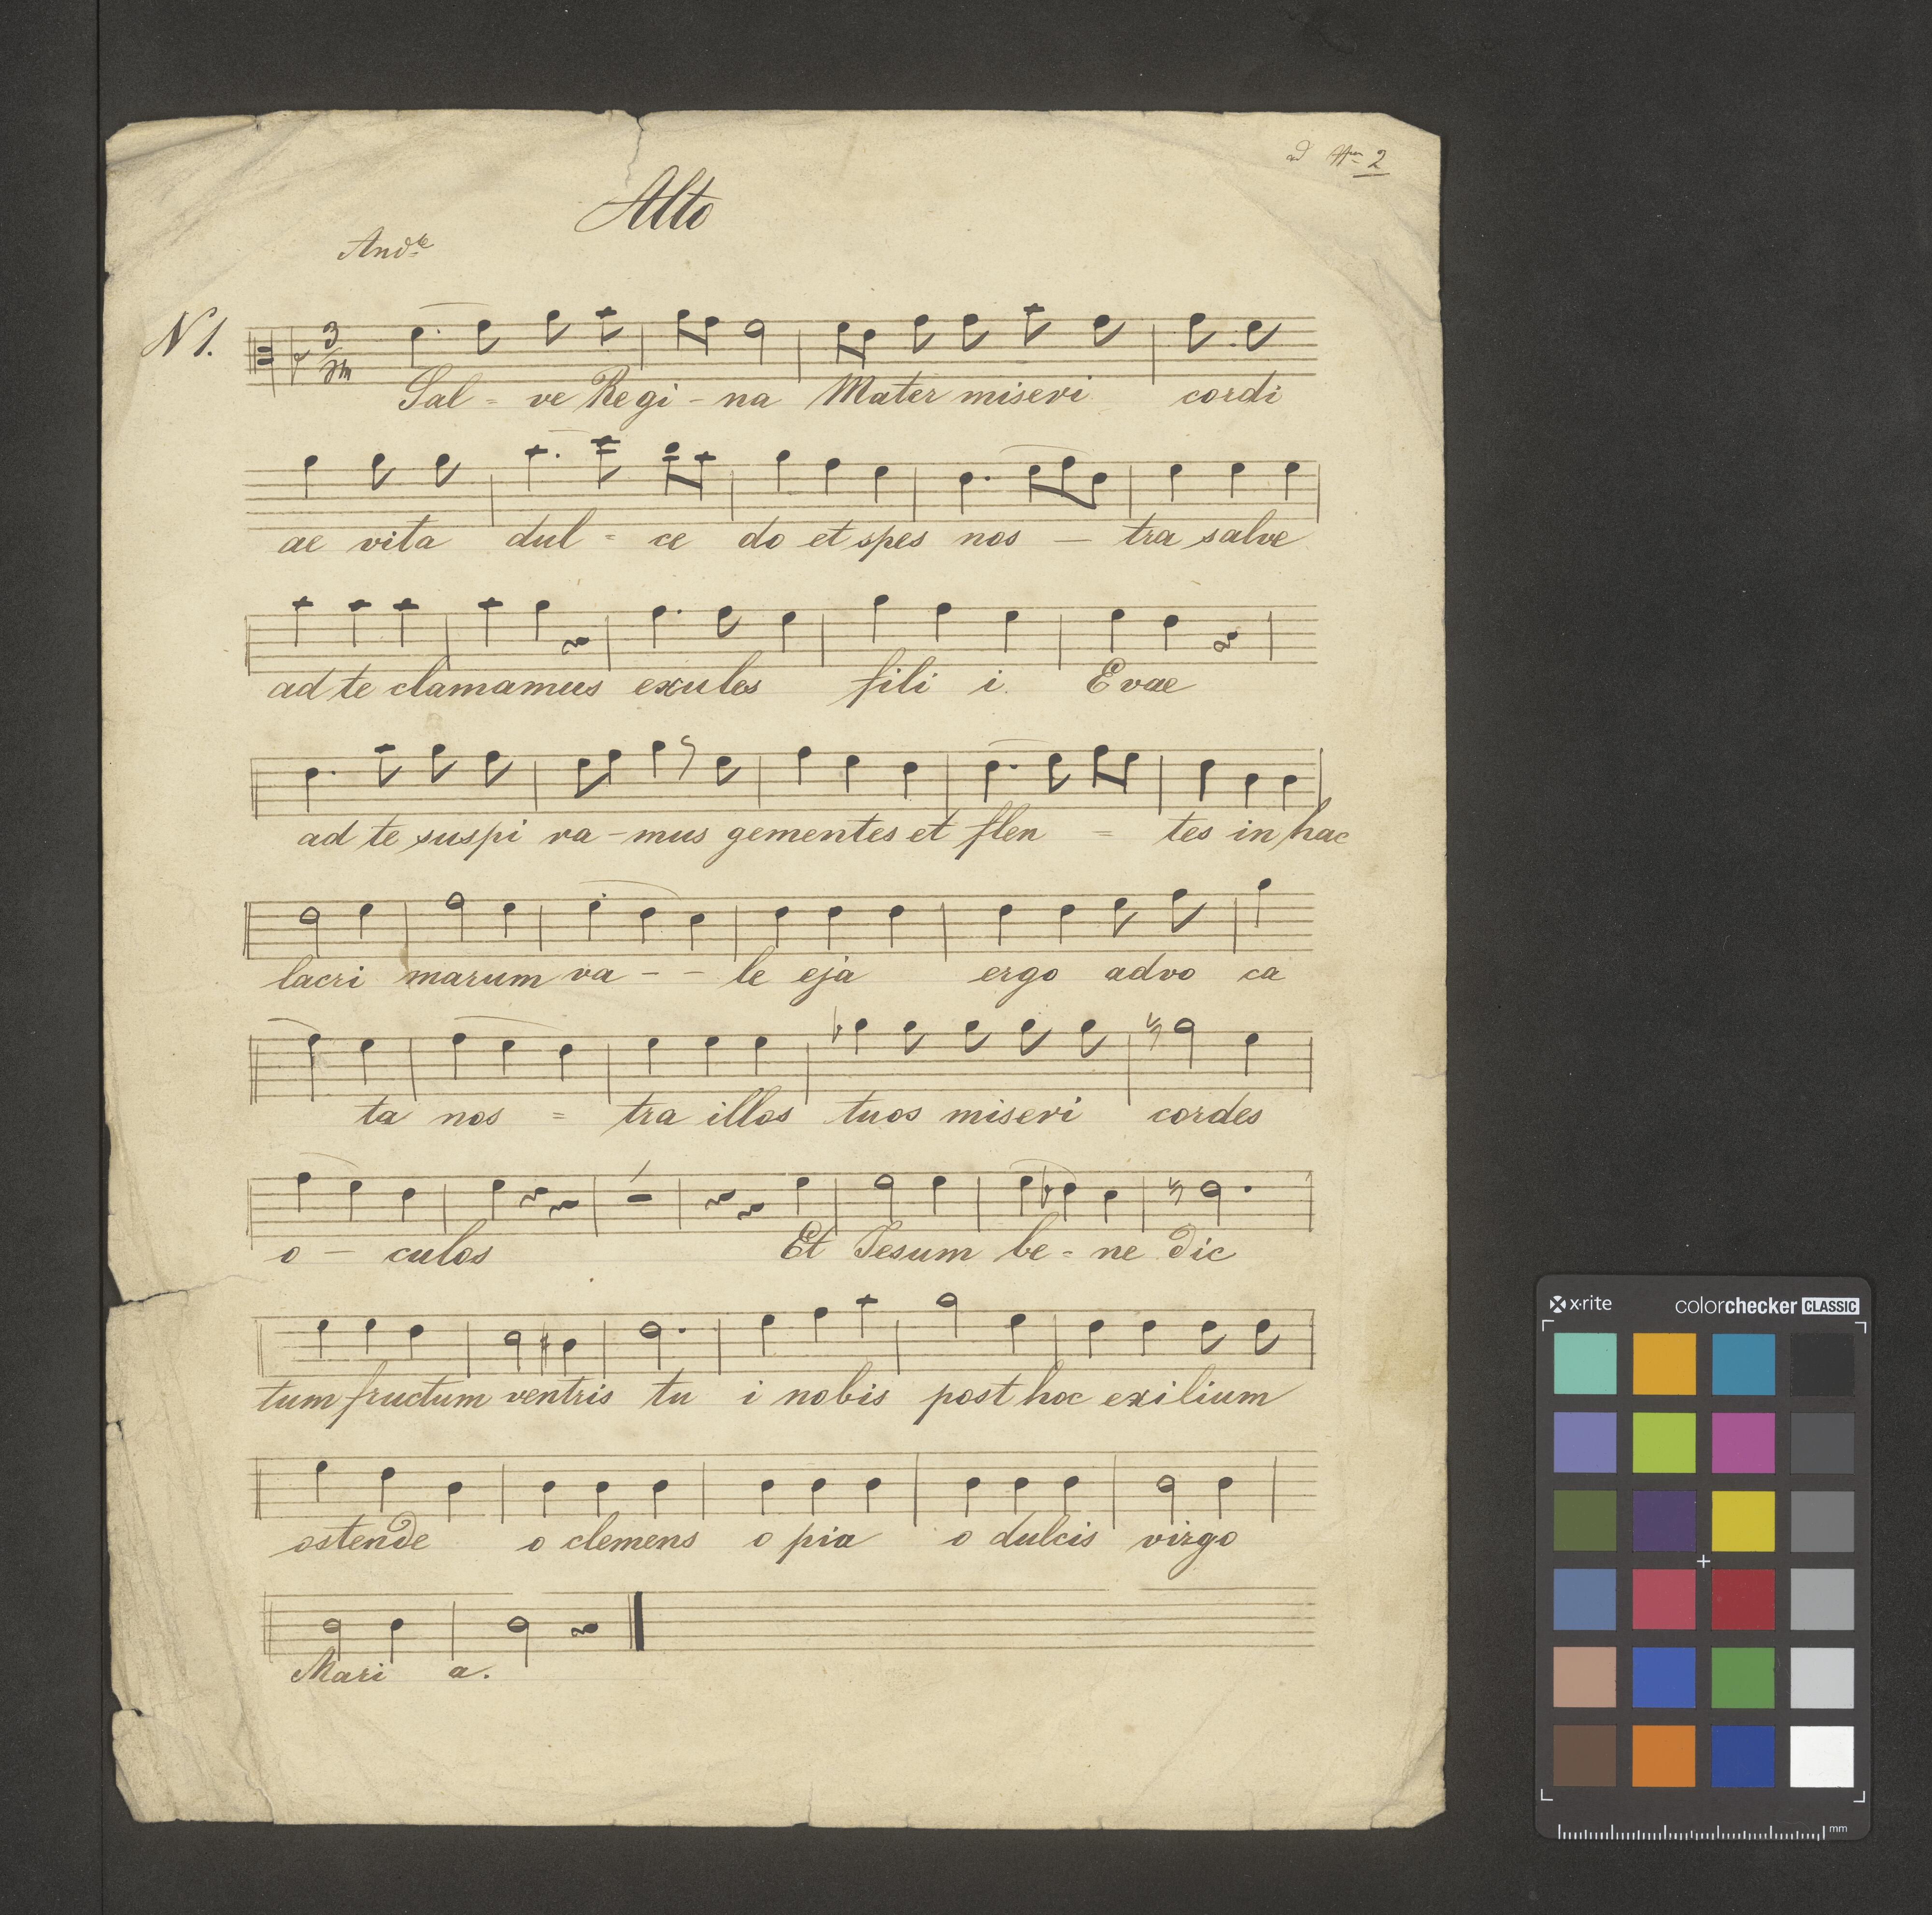 ad 2
Alto
Andte
N 1.
3
Sal = ve Regi - na Mater miseri cordi
ae vita dul = ce do et spes nos — tra salve
ad te clamamus exules fili i. Evae
ad te suspi ra - mus gementes et flen = tes in hac
lacri marum va - - le eja ergo advo ca
ta nos = tra illos tuos miseri cordes
o — culos Et Jesum be = ne dic
tum fructum ventris tu i nobis post hoc exilium
ostende o clemens o pia o dulcis virgo
Mari a.
x·rite colorchecker CLASSIC
mm